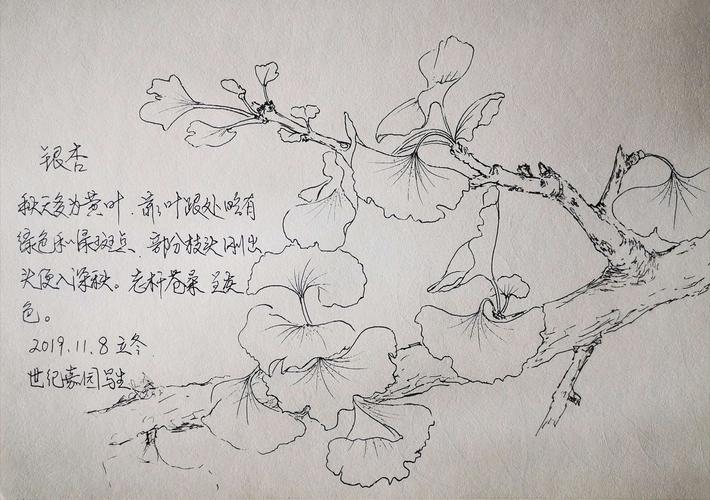 银杏
秋天多为黄叶.部分叶跟处略有
绿色和绿斑点.部分枝头刚出
头便入深秋。老杆苍桑呈灰
色。
2019.11.8 立冬
世纪嘉园写生